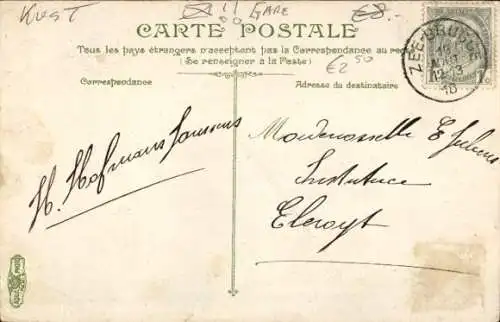 KUST GARE €8.-
CARTE POSTALE
Tous les pays étrangers n'acceptent pas la Correspondance au recto
(Se renseigner à la Poste)
€2 50
Correspondance
Adresse du destinataire
ZEE-BRUGGE
AOUT
12-13
10
H. Hofmans Janssens
Mademoiselle E. Julens
Institutrice